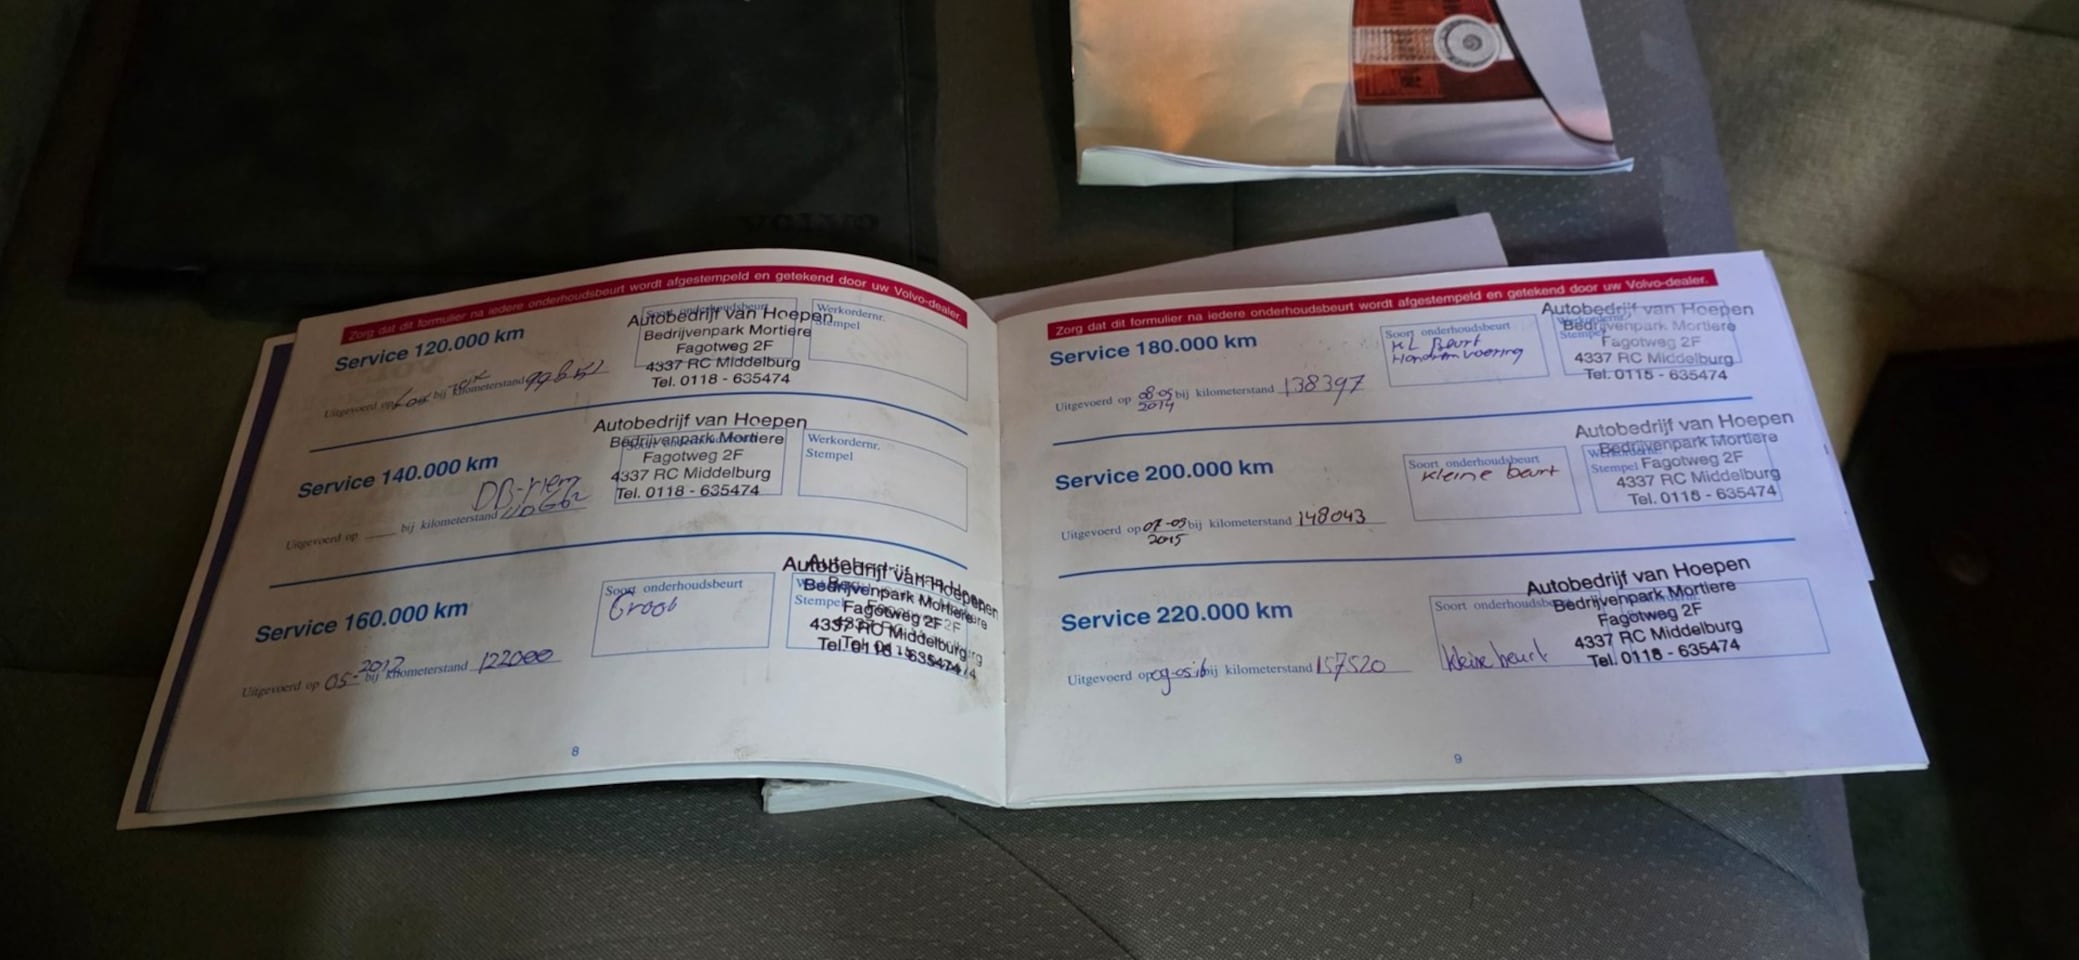 VOLVO
Zorg dat dit formulier na iedere onderhoudsbeurt wordt afgestempeld en getekend door uw Volvo-dealer.
Service 120.000 km
Autobedrijf van Hoepen
Bedrijvenpark Mortiere
Fagotweg 2F
4337 RC Middelburg
Tel. 0118 - 635474
Werkordernr.
Stempel
Uitgevoerd op bij kilometerstand
Service 140.000 km
Autobedrijf van Hoepen
Bedrijvenpark Mortiere
Fagotweg 2F
4337 RC Middelburg
Tel. 0118 - 635474
Werkordernr.
Stempel
DB-riem
Uitgevoerd op bij kilometerstand
Service 160.000 km
Soort onderhoudsbeurt
Groot
Autobedrijf van Hoepen
Bedrijvenpark Mortiere
Stempel
Fagotweg 2F
4337 RC Middelburg
Tel. 0118 - 635474
Uitgevoerd op 05-2012 bij kilometerstand 122000
8
Zorg dat dit formulier na iedere onderhoudsbeurt wordt afgestempeld en getekend door uw Volvo-dealer.
Service 180.000 km
Soort onderhoudsbeurt
KL Beurt
Autobedrijf van Hoepen
Bedrijvenpark Mortiere
Stempel
Fagotweg 2F
4337 RC Middelburg
Tel. 0118 - 635474
Uitgevoerd op 08-05 2014 bij kilometerstand 138397
Service 200.000 km
Soort onderhoudsbeurt
kleine beurt
Autobedrijf van Hoepen
Bedrijvenpark Mortiere
Stempel
Fagotweg 2F
4337 RC Middelburg
Tel. 0118 - 635474
Uitgevoerd op 07-05 2015 bij kilometerstand 148043
Service 220.000 km
Soort onderhoudsbeurt
kleine beurt
Autobedrijf van Hoepen
Bedrijvenpark Mortiere
Fagotweg 2F
4337 RC Middelburg
Tel. 0118 - 635474
Uitgevoerd op 09-05-16 bij kilometerstand 157520
9